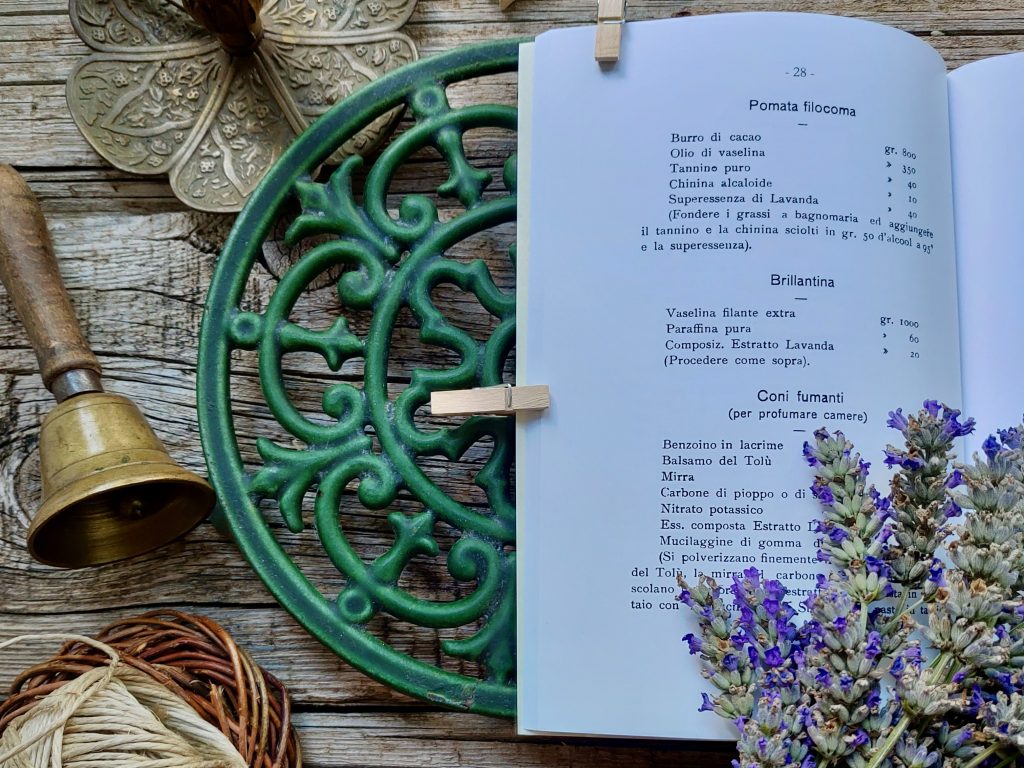 - 28 -
Pomata filocoma
Burro di cacao gr. 800
Olio di vaselina » 350
Tannino puro » 40
Chinina alcaloide » 10
Superessenza di Lavanda » 40
(Fondere i grassi a bagnomaria ed aggiungere
il tannino e la chinina sciolti in gr. 50 d'alcool a 95°
e la superessenza).
Brillantina
Vaselina filante extra gr. 1000
Paraffina pura » 60
Composiz. Estratto Lavanda » 20
(Procedere come sopra).
Coni fumanti
(per profumare camere)
Benzoino in lacrime
Balsamo del Tolù
Mirra
Carbone di pioppo o di
Nitrato potassico
Ess. composta Estratto
Mucilaggine di gomma
(Si polverizzano finemente
del Tolù, la mirra, il carbone
scolano
taio con